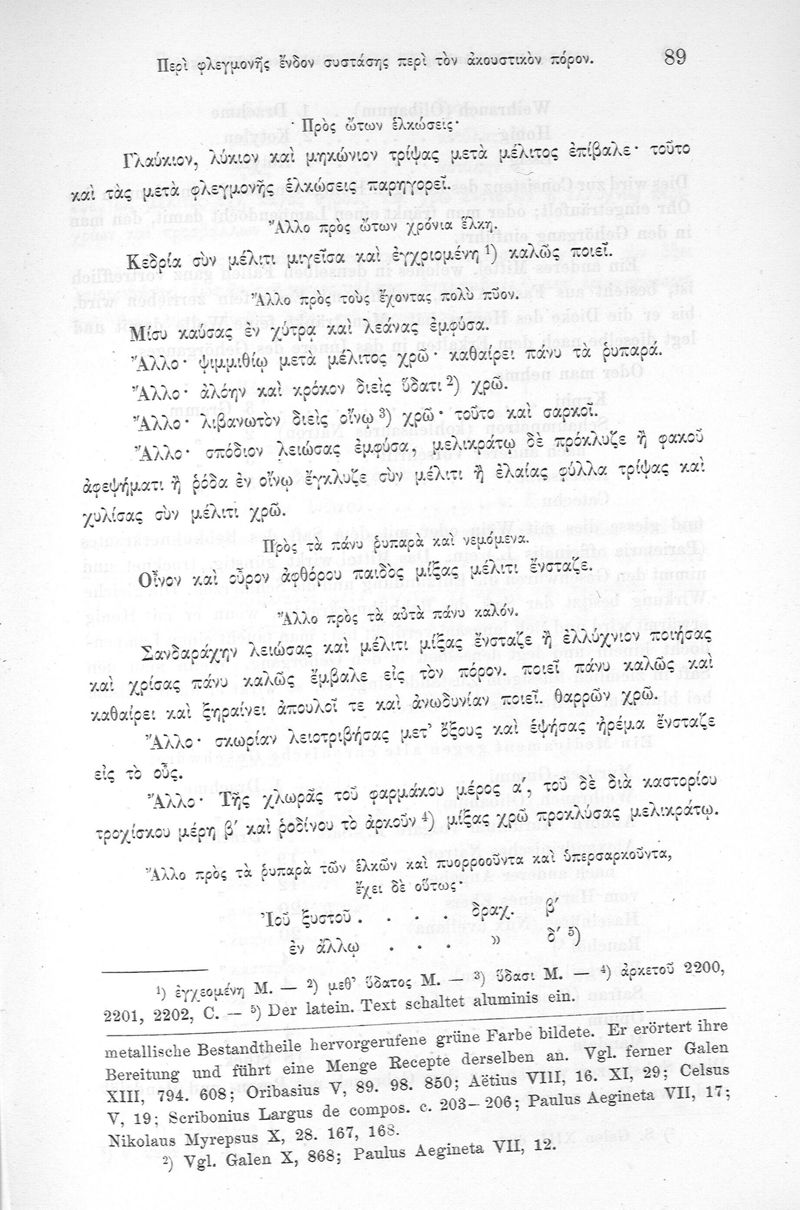 Περὶ φλεγμονῆς ἔνδον συστάσης περὶ τὸν ἀκουστικὸν πόρον. 89
Πρὸς ὤτων ἑλκώσεις·
Γλαύκιον, λύκιον καὶ μηκώνιον τρίψας μετὰ μέλιτος ἐπίβαλε· τοῦτο
καὶ τὰς μετὰ φλεγμονῆς ἑλκώσεις παρηγορεῖ.
Ἄλλο πρὸς ὤτων χρόνια ἕλκη.
Κεδρία σὺν μέλιτι μιγεῖσα καὶ ἐγχριομένη ¹) καλῶς ποιεῖ.
Ἄλλο πρὸς τοὺς ἔχοντας πολὺ πῦον.
Μίσυ καύσας ἐν χύτρᾳ καὶ λεάνας ἐμφύσα.
Ἄλλο· ψιμμιθίῳ μετὰ μέλιτος χρῶ· καθαίρει πάνυ τὰ ῥυπαρά.
Ἄλλο· ἀλόην καὶ κρόκον διεὶς ὕδατι ²) χρῶ.
Ἄλλο· λιβανωτὸν διεὶς οἴνῳ ³) χρῶ· τοῦτο καὶ σαρκοῖ.
Ἄλλο· σπόδιον λειώσας ἐμφύσα, μελικράτῳ δὲ πρόκλυζε ἢ φακοῦ
ἀφεψήματι ἢ ῥόδα ἐν οἴνῳ ἔγκλυζε σὺν μέλιτι ἢ ἐλαίας φύλλα τρίψας καὶ
χυλίσας σὺν μέλιτι χρῶ.
Πρὸς τὰ πάνυ ῥυπαρὰ καὶ νεμόμενα.
Οἶνον καὶ οὖρον ἀφθόρου παιδὸς μίξας μέλιτι ἔνσταζε.
Ἄλλο πρὸς τὰ αὐτὰ πάνυ καλόν.
Σανδαράχην λειώσας καὶ μέλιτι μίξας ἔνσταζε ἢ ἐλλύχνιον ποιήσας
καὶ χρίσας πάνυ καλῶς ἔμβαλε εἰς τὸν πόρον. ποιεῖ πάνυ καλῶς καὶ
καθαίρει καὶ ξηραίνει ἀπουλοῖ τε καὶ ἀνωδυνίαν ποιεῖ. θαρρῶν χρῶ.
Ἄλλο· σκωρίαν λειοτριβήσας μετ’ ὄξους καὶ ἑψήσας ἠρέμα ἔνσταζε
εἰς τὸ οὖς.
Ἄλλο· Τῆς χλωρᾶς τοῦ φαρμάκου μέρος α΄, τοῦ δὲ διὰ καστορίου
τροχίσκου μέρη β΄ καὶ ῥοδίνου τὸ ἀρκοῦν ⁴) μίξας χρῶ προκλύσας μελικράτῳ.
Ἄλλο πρὸς τὰ ῥυπαρὰ τῶν ἑλκῶν καὶ πυορροοῦντα καὶ ὑπερσαρκοῦντα,
ἔχει δὲ οὕτως·
Ἰοῦ ξυστοῦ . . . . δραχ. β΄
ἐν ἄλλῳ . . . » δ΄ ⁵)
¹) ἐγχεομένη M. — ²) μεθ’ ὕδατος M. — ³) ὕδασι M. — ⁴) ἀρκετοῦ 2200,
2201, 2202, C. — ⁵) Der latein. Text schaltet aluminis ein.
metallische Bestandtheile hervorgerufene grüne Farbe bildete. Er erörtert ihre
Bereitung und führt eine Menge Recepte derselben an. Vgl. ferner Galen
XIII, 794. 608; Oribasius V, 89. 98. 850; Aëtius VIII, 16. XI, 29; Celsus
V, 19; Scribonius Largus de compos. c. 203—206; Paulus Aegineta VII, 17;
Nikolaus Myrepsus X, 28. 167, 168.
²) Vgl. Galen X, 868; Paulus Aegineta VII, 12.